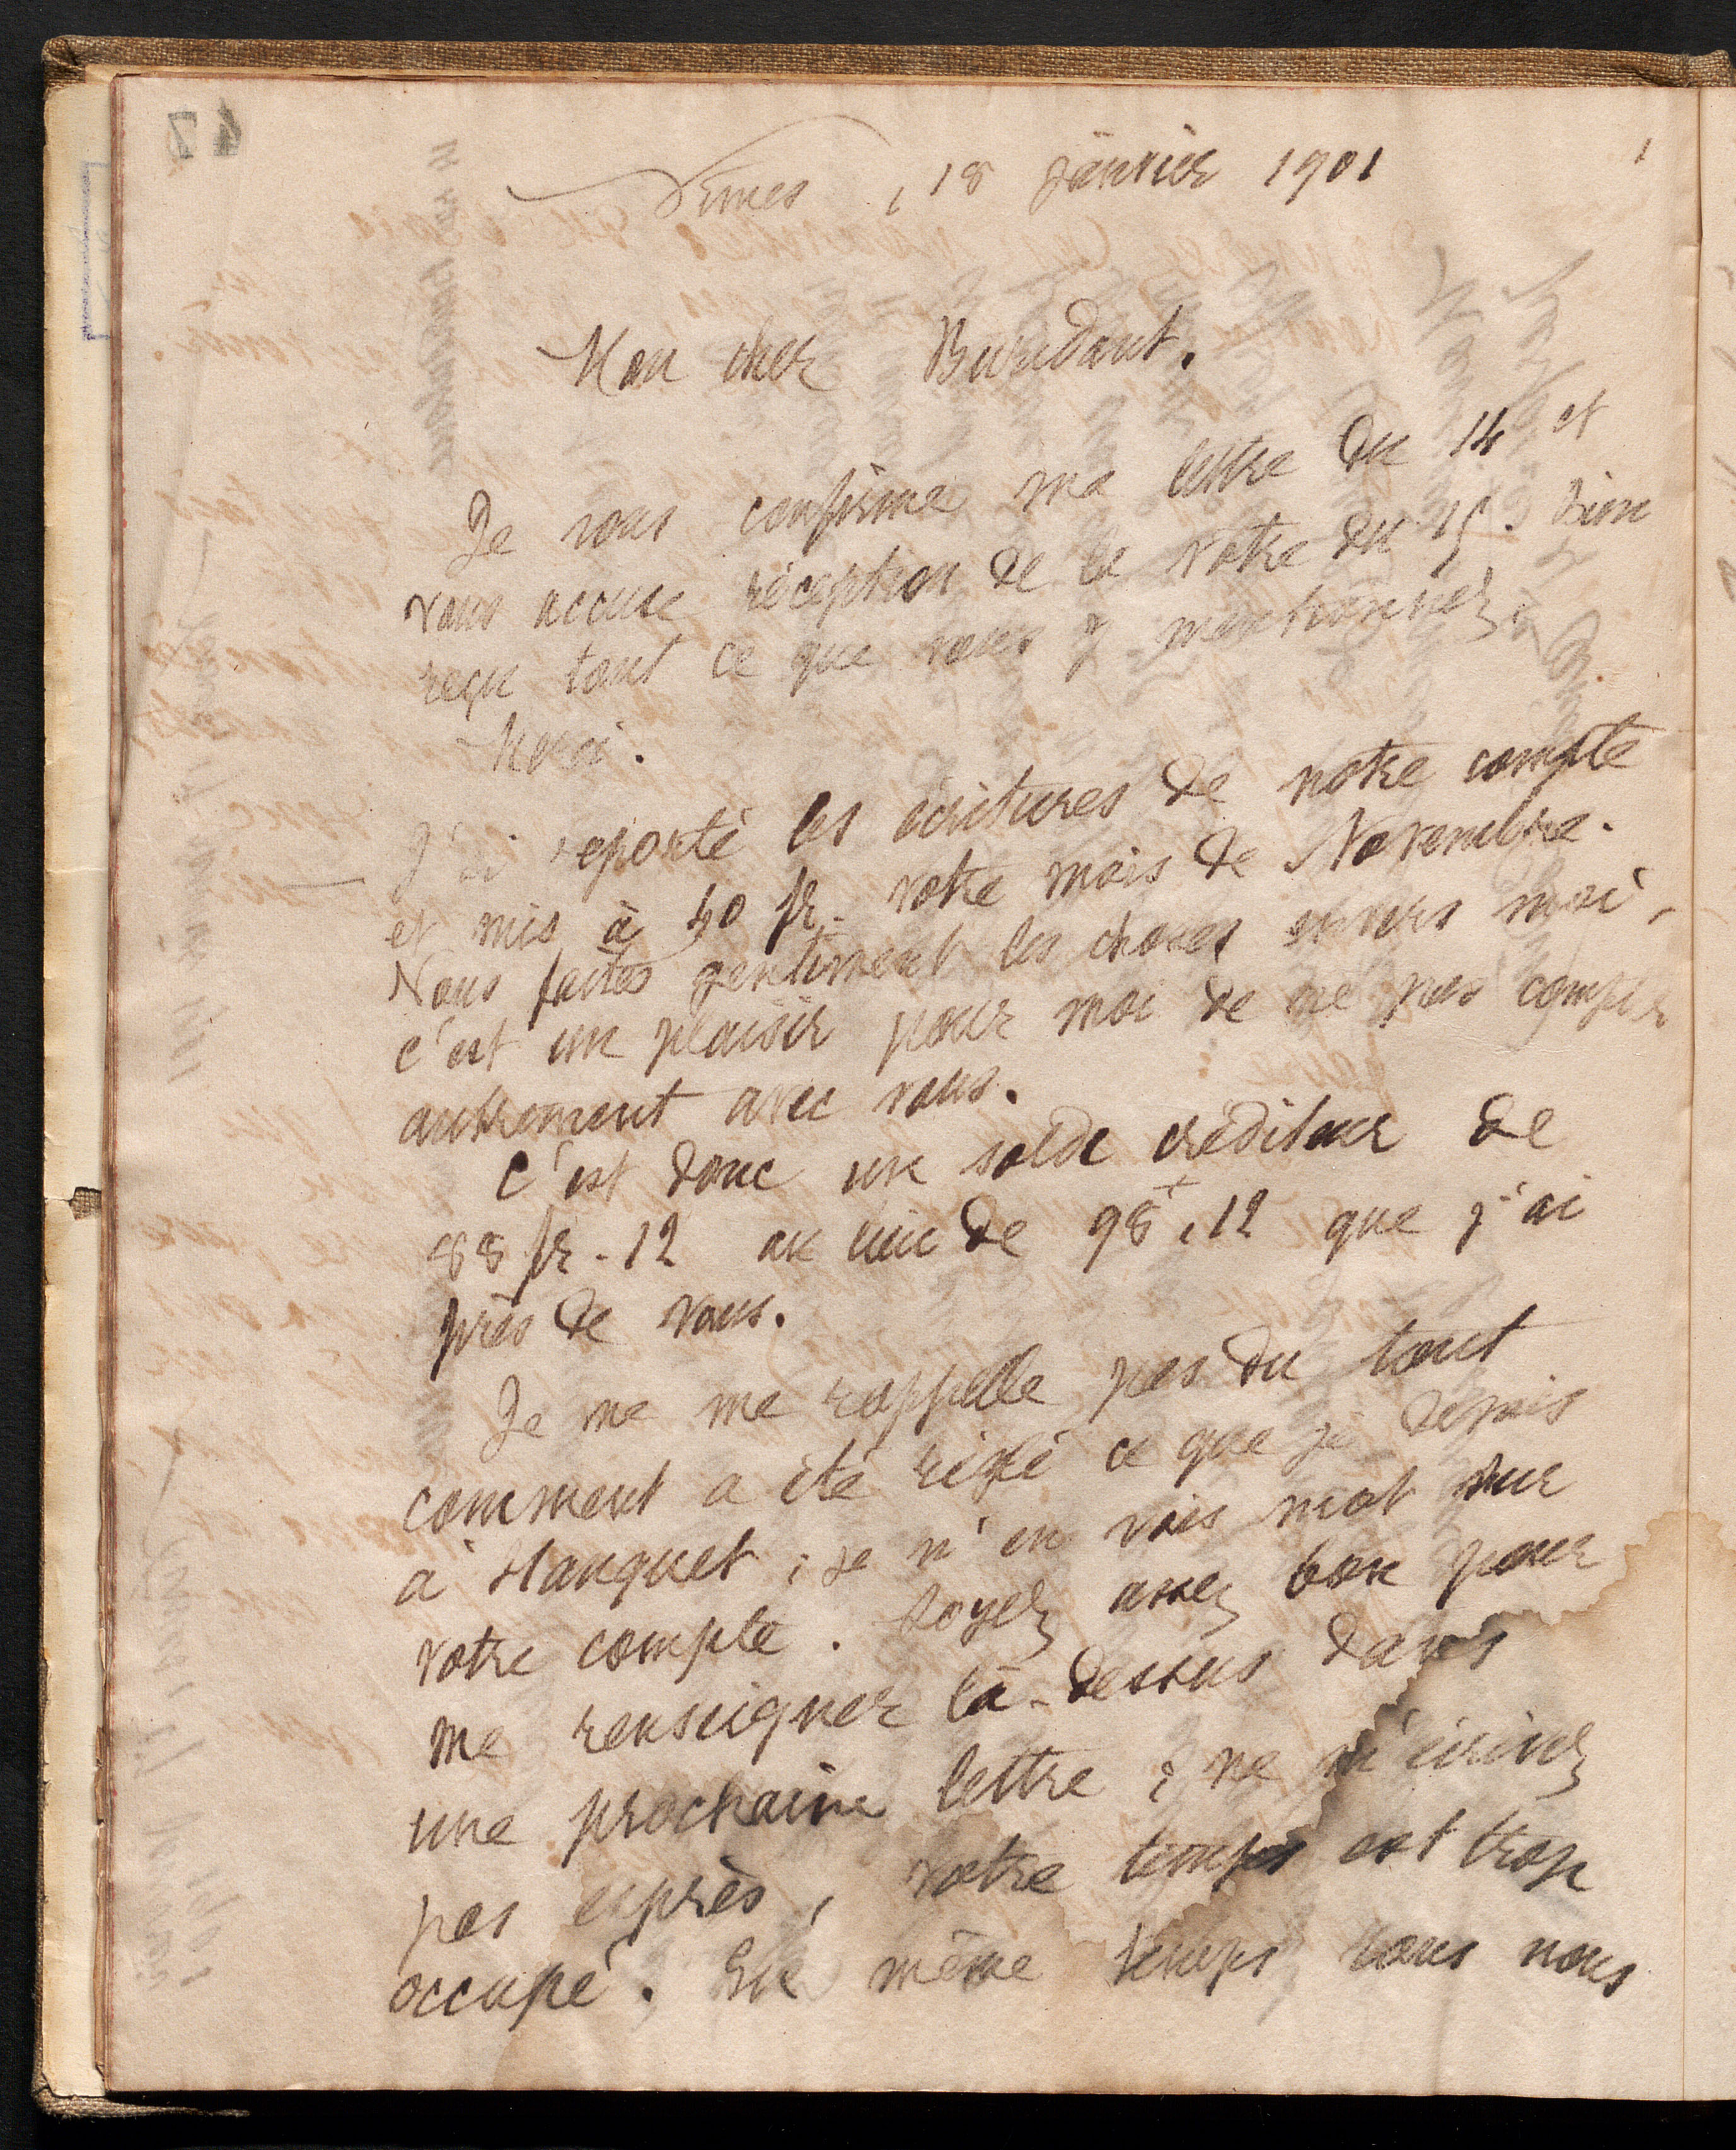 Nîmes, 18 janvier 1901
Mon cher Buridant.
Je vous confirme ma lettre du 14 et
vous accuse réception de la vôtre du 15. Bien
reçu tout ce que vous y mentionnez.
Merci.
J'ai reporté les écritures de notre compte
et mis à 40 fr. votre mois de Novembre.
Vous faites gentiment les choses envers moi,
c'est un plaisir pour moi de ne pas compter
autrement avec vous.
C'est donc un solde créditeur de
88 fr. 12 au lieu de 98,12 que j'ai
près de vous.
Je ne me rappelle pas du tout
comment a été réglé ce que je devais
à Hanquet ; je n'en vois mot sur
votre compte. Soyez assez bon pour
me renseigner là-dessus dans
une prochaine lettre ; ne m'écrivez
pas exprès, votre temps est trop
occupé. En même temps vous nous